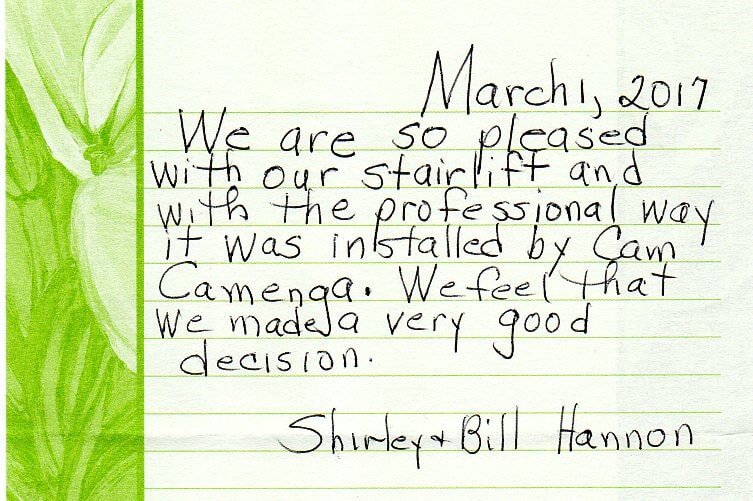 March 1, 2017
We are so pleased
with our stairlift and
with the professional way
it was installed by Cam
Camenga. We feel that
we made a very good
decision.
Shirley + Bill Hannon